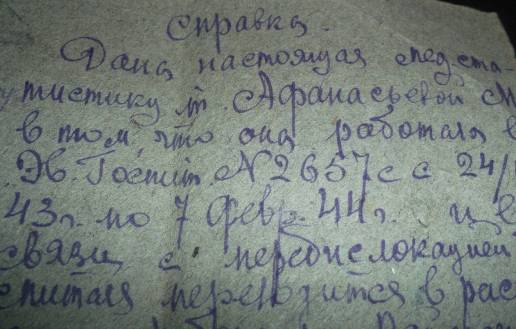 Справка.
Дана настоящая мед.ста-
тистику т. Афанасьевой М
в том, что она работала в
Эв. Госпит. N 2657 с с 24/
43г. по 7 февр. 44г. и в
связи с передислокацией
спиталя переводится в рас